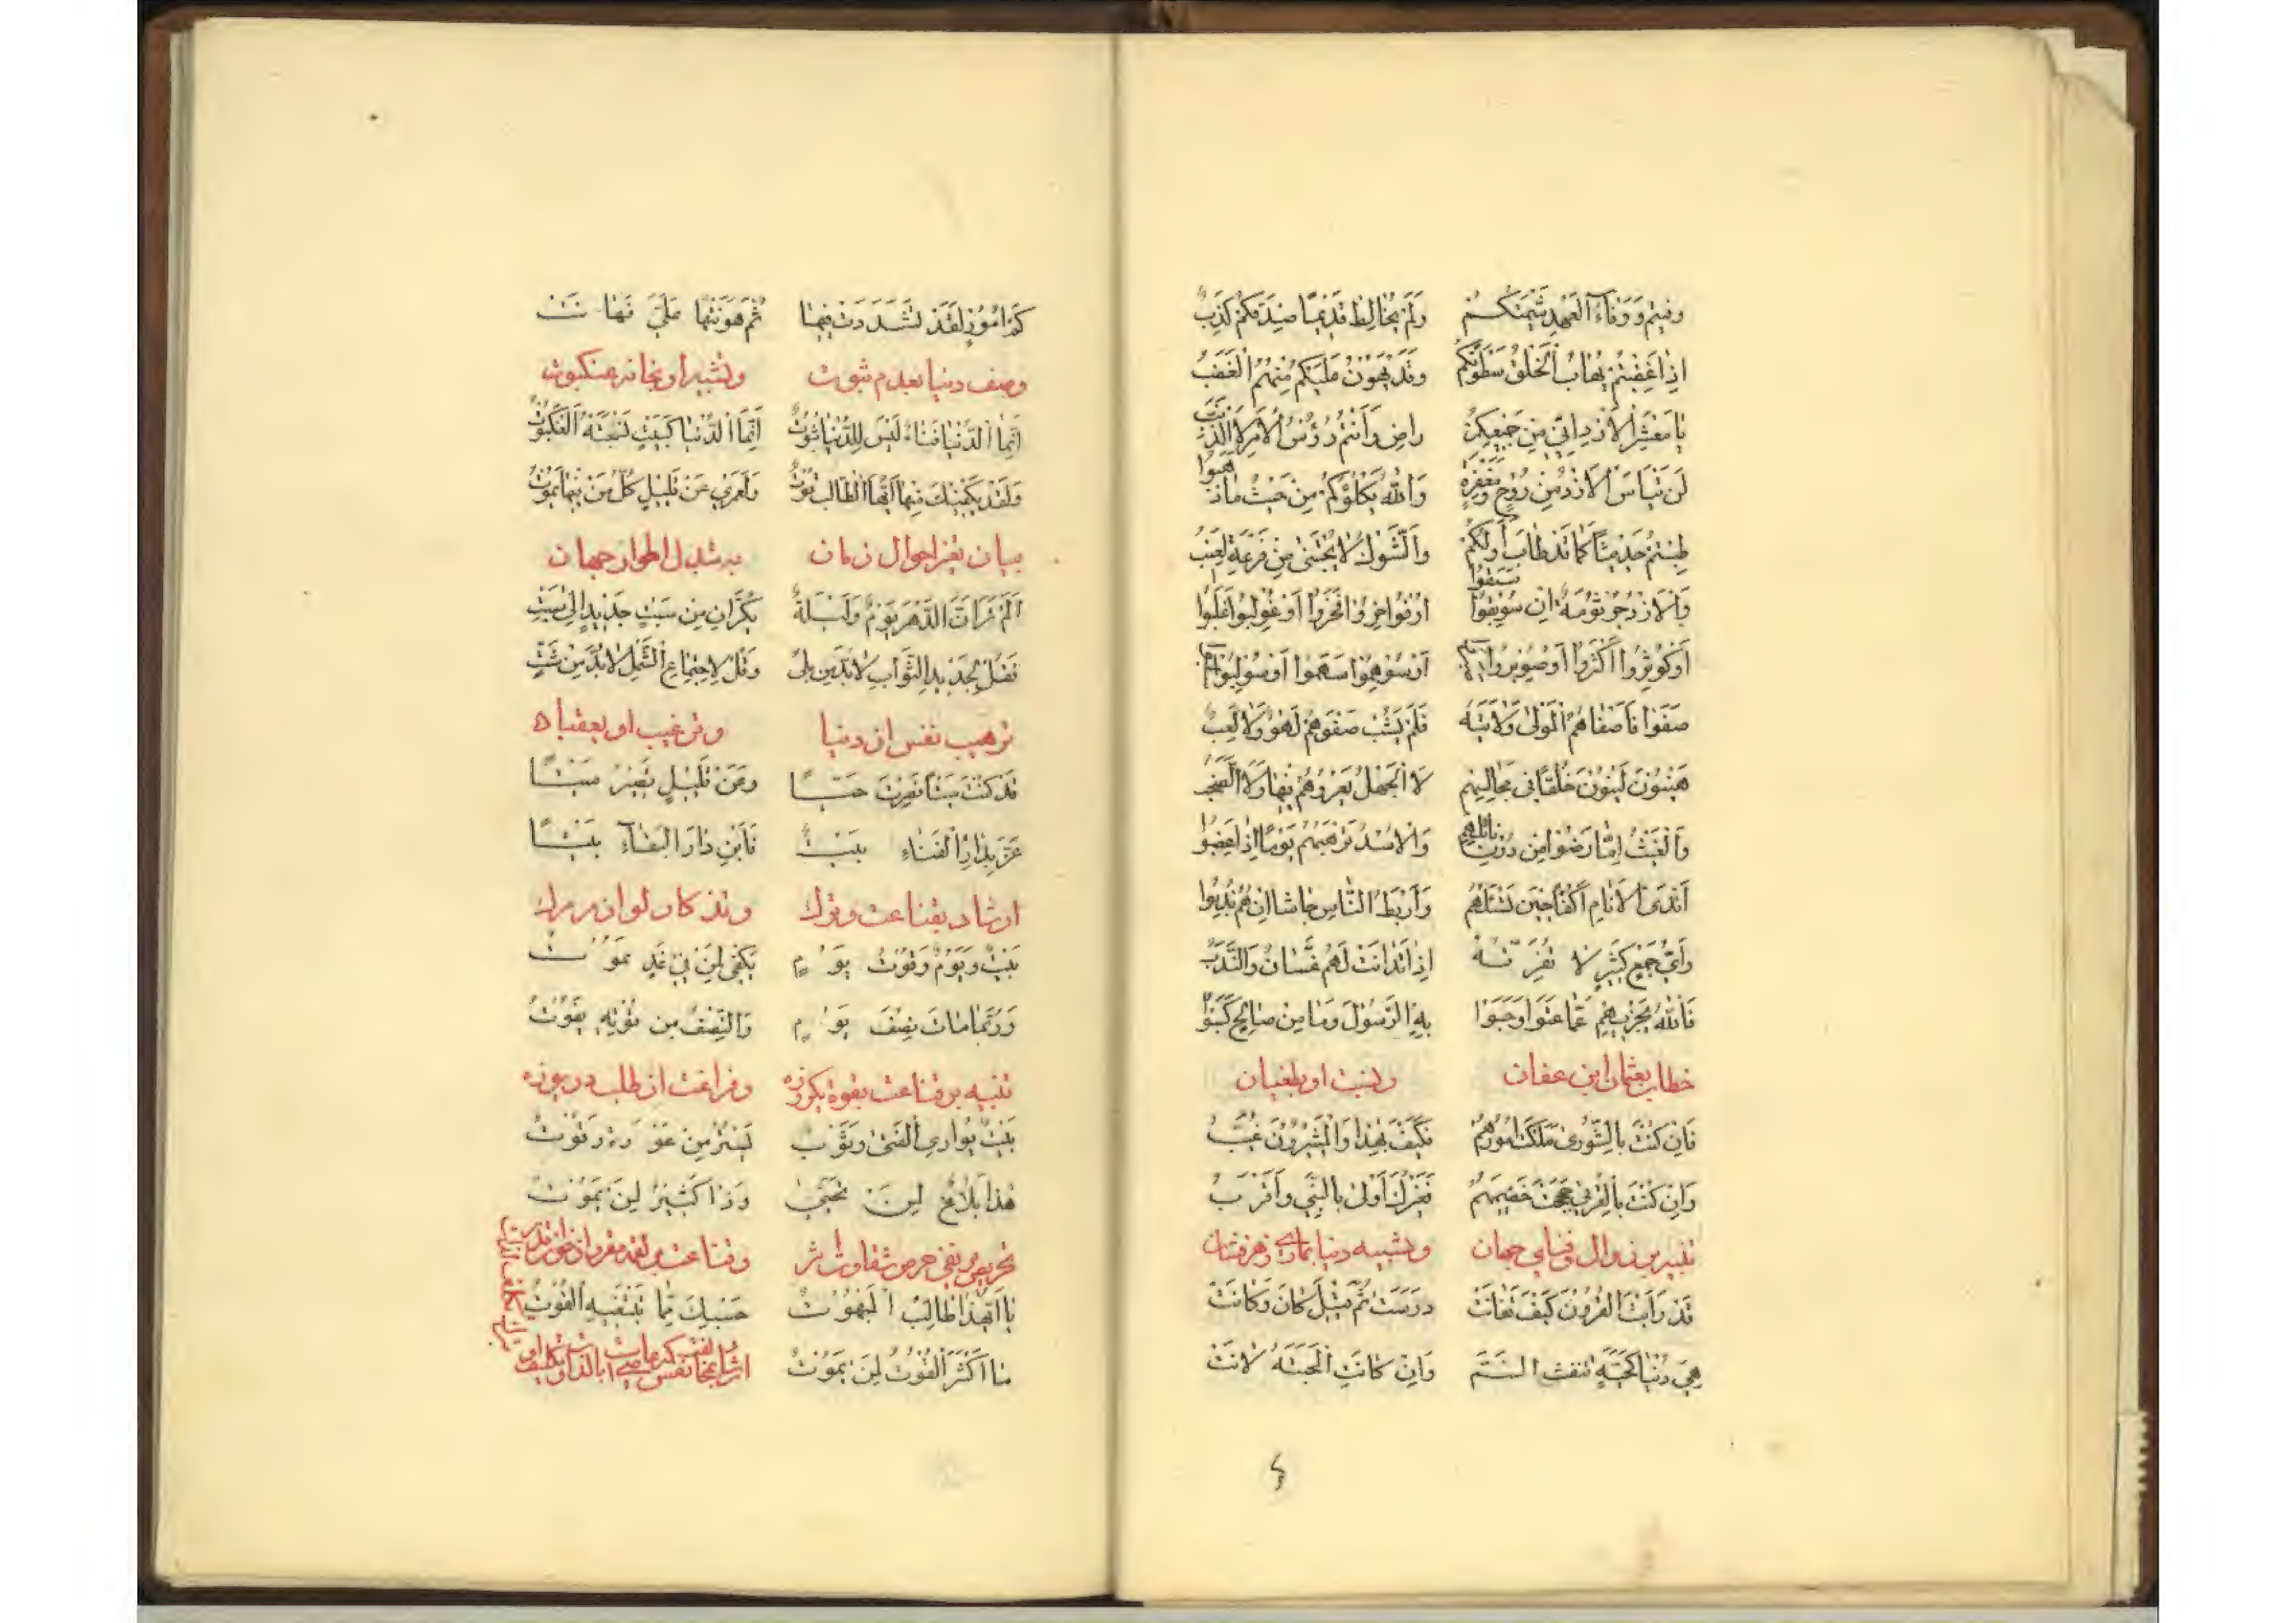 وفيتم ووفاء العهد شيمتكم ولم يخالط قديما صدقكم كذب
اذا غضبتم يهاب الخلق سطوتكم وقد يهون عليكم منهم الغضب
يا معشر الازد اني من جميعكم راض وانتم رؤس الامر لا الذنب
لن تيأس الازد من روح ومغفرة والله يكلؤكم من حيث ما ذهبوا
طبتم حديثا كما قد طاب اولكم والشوك لا يجتنى من فرعه العنب
والازد جرثومة ان سوبقوا سبقوا او فوخروا فخروا او غولبوا غلبوا
او كوثروا اكثروا او صوبروا صبروا او سوهموا سهموا او سولبوا سلبوا
صفوا فاصفاهم المولى ولايته فلم يشب صفوهم لهو ولا لعب
هينون لينون خلقا في مجالسهم لا الجهل يعروهم فيها ولا الصخب
والغيث اما رضوا من دون نائلهم والاسد ترهبهم يوما اذا غضبوا
اندى الانام اكفا حين تسئلهم واربط الناس جاشا ان هم ندبوا
واي جمع كثير لا تفرقه اذا تدانت لهم غسان والندب
فالله يجزيهم عما اتوا وحبوا به الرسول وما من صالح كسبوا
خطاب بعثمان ابن عفان ونسبت او بطغيان
فان كنت بالشورى ملكت امورهم فكيف بهذا والمشيرون غيب
وان كنت بالقربى حججت خصيمهم فغيرك اولى بالنبي واقرب
تنبيه بر زوال وفناى جهان وتشبيه دنيا بمارى زهرفشان
قد رأيت القرون كيف تفانت درست ثم قيل كان وكانت
هي دنيا كحية تنفث السم وان كانت المجسة لانت
كم امور لقد تشددت فيها ثم هونتها علي فهانت
وصف دنيا بعدم ثبوت وتشبيه او بخانه عنكبوت
انما الدنيا فناء ليس للدنيا ثبوت انما الدنيا كبيت نسجته العنكبوت
ولقد يكفيك منها ايها الطالب قوت ولعمري عن قليل كل من فيها يموت
بيان تغير احوال زمان وتبدل اطوار جهان
الم تر ان الدهر يوم وليلة يكران من سبت جديد الى سبت
فقل لجديد الثواب لا بد من بلى وقل لاجتماع الشمل لا بد من شت
ترهيب نفس از دنيا وترغيب او بعقباه
قد كنت ميتا فصرت حيا وعن قليل تصير ميتا
عز بدار الفناء بيت فابن دار البقاء بيتا
ارشاد بقناعت وترك وتذكار لوازم مرك
بيت ويوم وقوت يوم يكفي لمن في غد يموت
وربما مات نصف يوم والنصف من قوته يفوت
تنبيه بر قناعت بقوة يكروزه وفراغت از طلب دريوزه
بيت يواري الفتى وثوب يستر من عورة وقوت
هذا بلاغ لمن تحجى وذا كثير لمن يموت
تحريض بر نفى حرص شقاوت اثر وقناعت
يا ايهذا الطالب المبهوت حسبك مما تبتغيه القوت
ما اكثر القوت لمن يموت